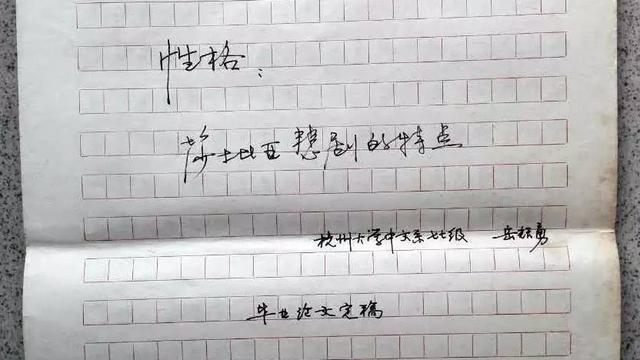 性格：
莎士比亚悲剧的特点
杭州大学中文系七七级 岳
毕业论文定稿